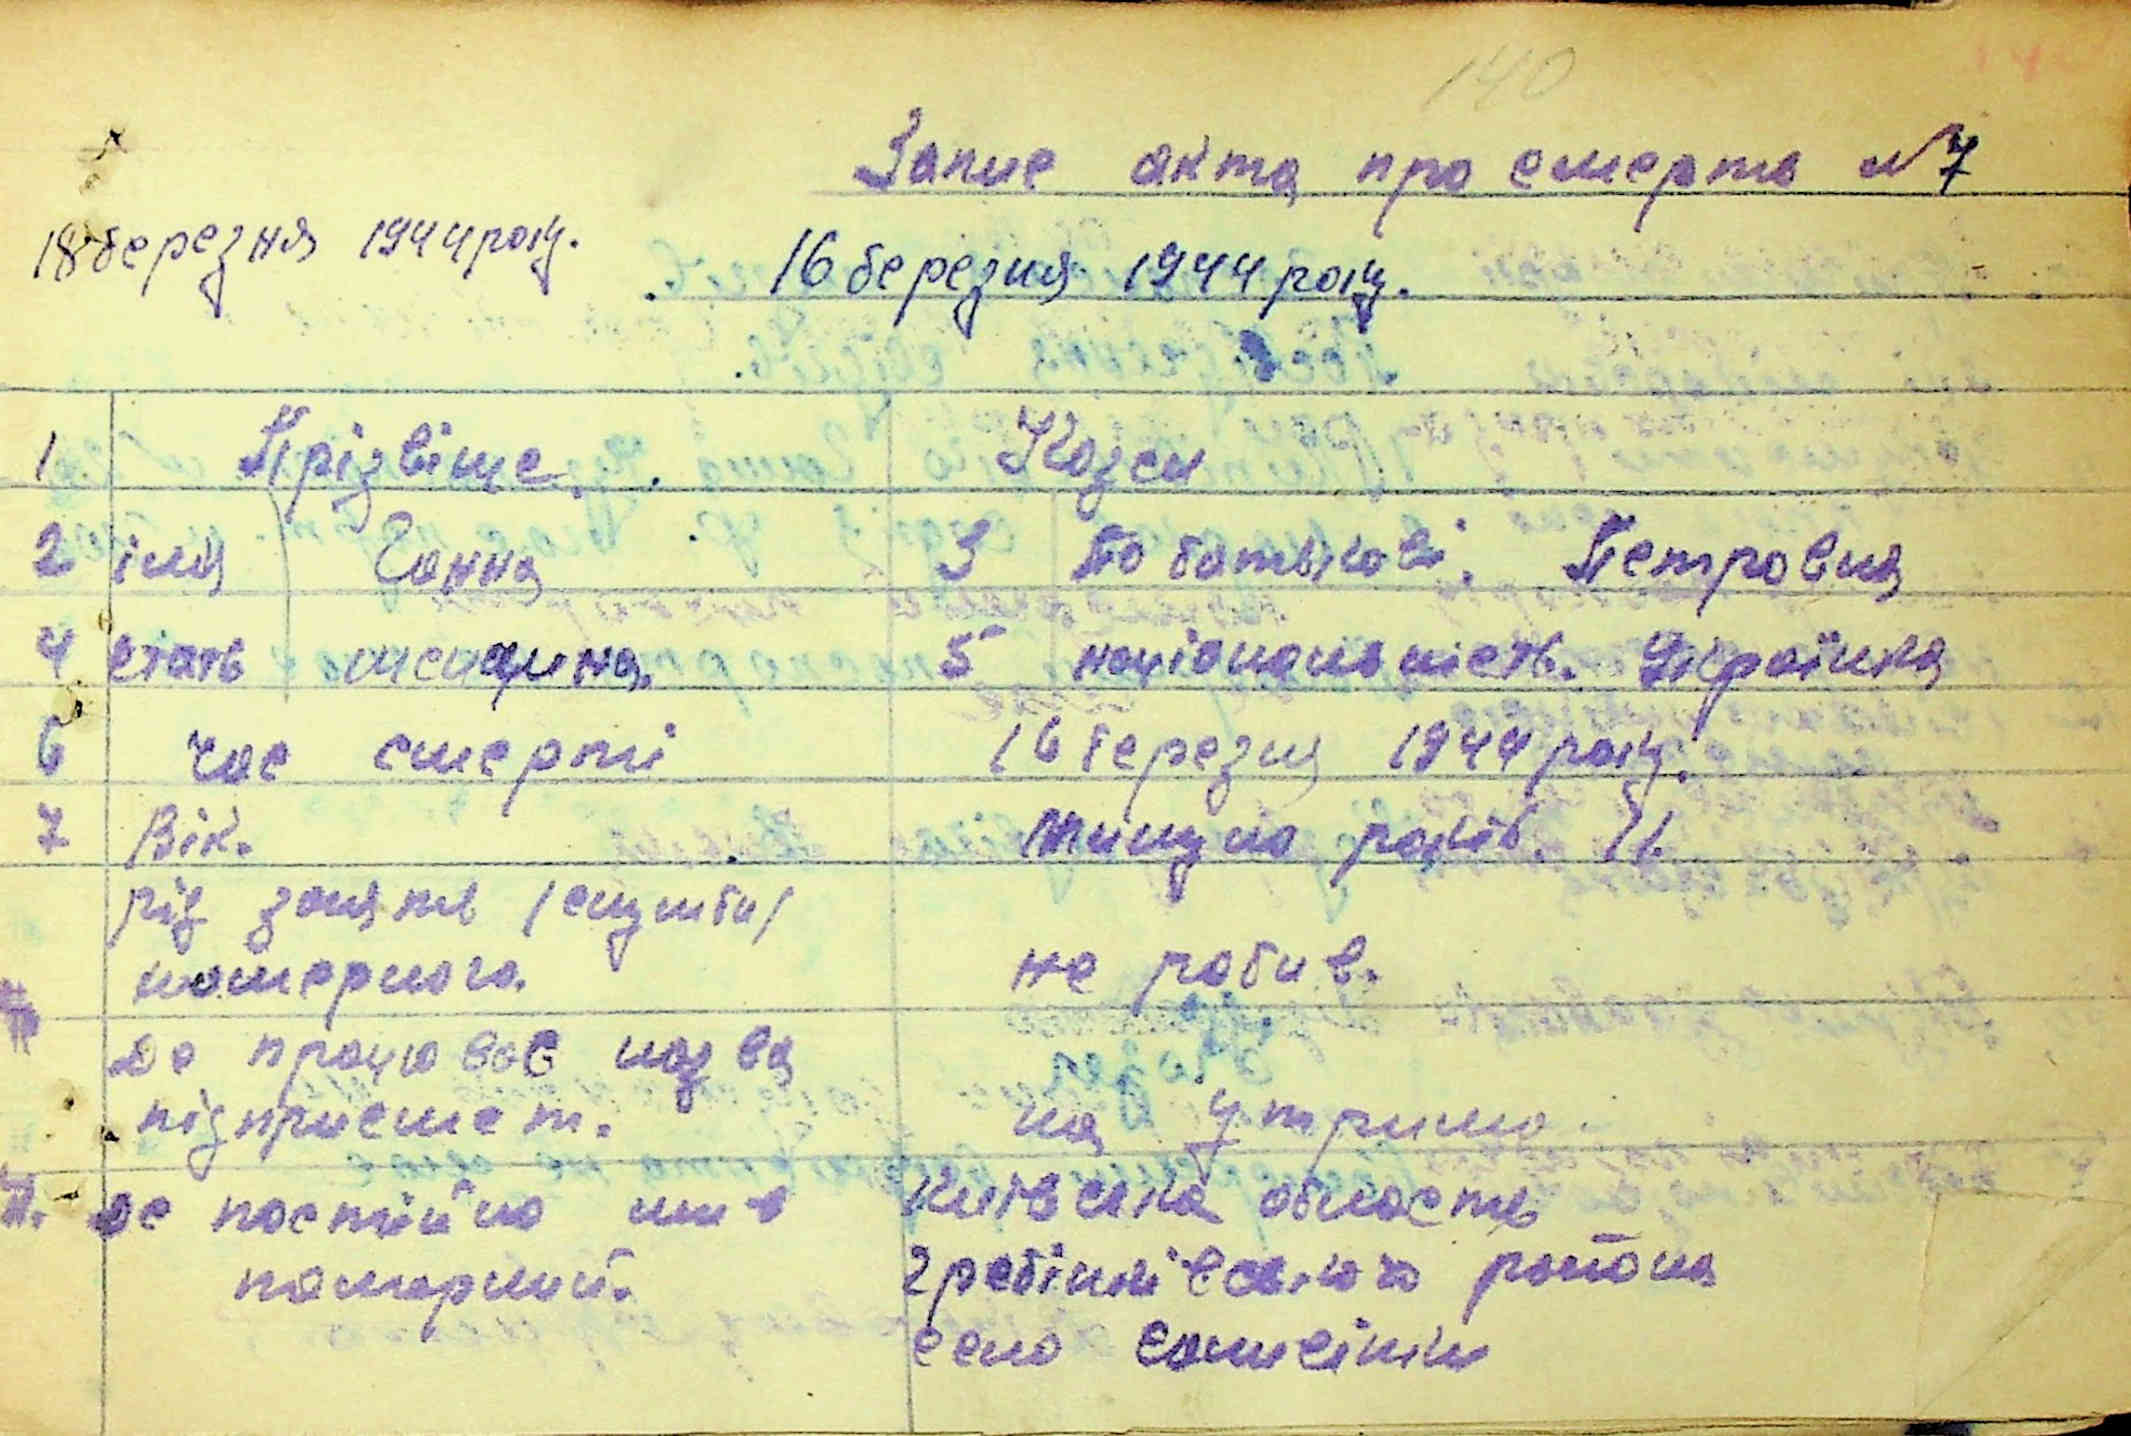 140
Запис акта про смерть №7
18 березня 1944 року.
16 березня 1944 року.
1 Прізвіще. Козел
2 імя Ганна 3 По батькові. Петровна
4 стать женщина. 5 національність. Українка
6 час смерті 16 березня 1944 року.
7 Вік. Минуло років. 71.
рід занять /служби/
померлого. не робив.
де працював назва
підприємст. на утриман.
де постійно жив Київська область
померлий. Гребінківського района
село Саливінки